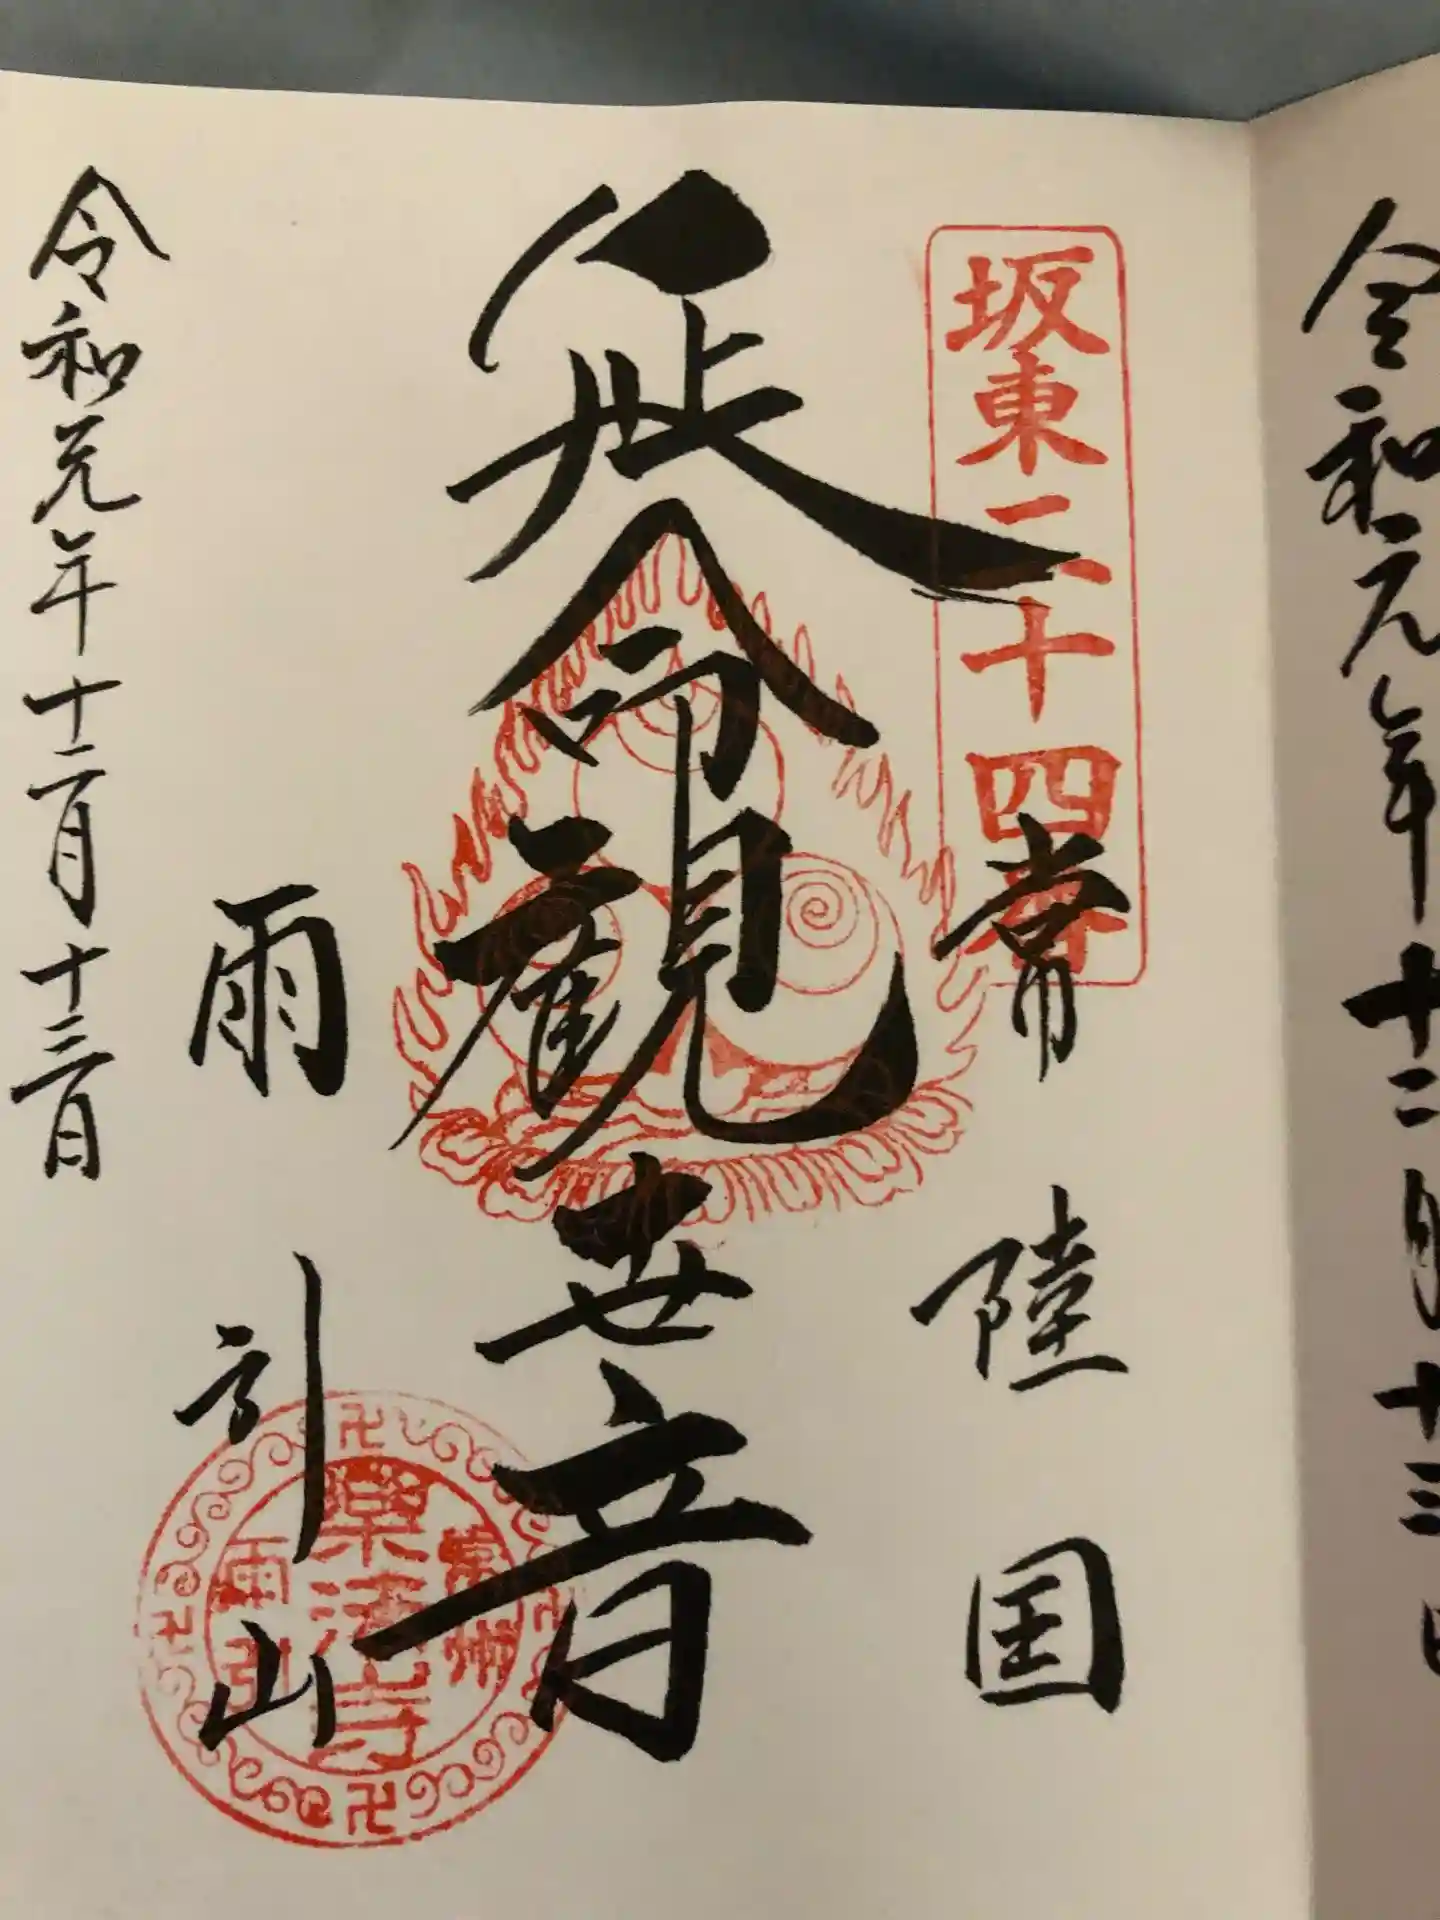 令和元年十二月十三日
坂東二十四番
常陸国
延命観世音
雨引山
常州
樂法寺
雨引
令和元年十二月十三日